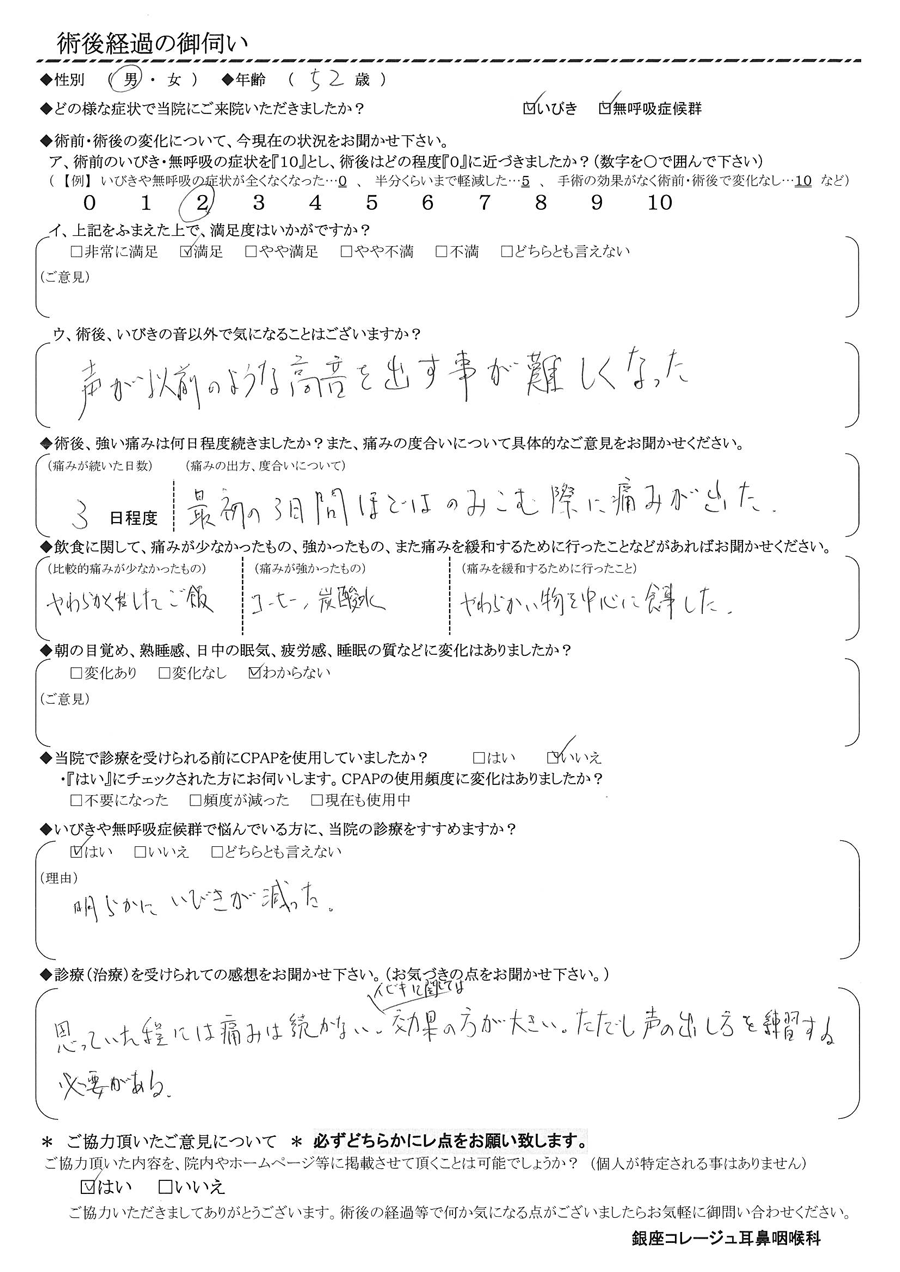 術後経過の御伺い
◆性別 （ 男 ・ 女 ） ◆年齢 （ 52 歳 ）
◆どの様な症状で当院にご来院いただきましたか？ ☑いびき ☑無呼吸症候群
◆術前・術後の変化について、今現在の状況をお聞かせ下さい。
ア、術前のいびき・無呼吸の症状を『10』とし、術後はどの程度『0』に近づきましたか？（数字を○で囲んで下さい）
（ 【例】 いびきや無呼吸の症状が全くなくなった…0 、 半分くらいまで軽減した…5 、 手術の効果がなく術前・術後で変化なし…10 など）
0 1 2 3 4 5 6 7 8 9 10
イ、上記をふまえた上で、満足度はいかがですか？
□非常に満足 ☑満足 □やや満足 □やや不満 □不満 □どちらとも言えない
（ご意見）
ウ、術後、いびきの音以外で気になることはございますか？
声が以前のような高音を出す事が難しくなった
◆術後、強い痛みは何日程度続きましたか？また、痛みの度合いについて具体的なご意見をお聞かせください。
（痛みが続いた日数） （痛みの出方、度合いについて）
3 日程度 最初の3日間ほどはのみこむ際に痛みが出た．
◆飲食に関して、痛みが少なかったもの、強かったもの、また痛みを緩和するために行ったことなどがあればお聞かせください。
（比較的痛みが少なかったもの） （痛みが強かったもの） （痛みを緩和するために行ったこと）
やわらかくしたご飯 コーヒー，炭酸水 やわらかい物を中心に食事した．
◆朝の目覚め、熟睡感、日中の眠気、疲労感、睡眠の質などに変化はありましたか？
□変化あり □変化なし ☑わからない
（ご意見）
◆当院で診療を受けられる前にCPAPを使用していましたか？ □はい ☑いいえ
・『はい』にチェックされた方にお伺いします。CPAPの使用頻度に変化はありましたか？
□不要になった □頻度が減った □現在も使用中
◆いびきや無呼吸症候群で悩んでいる方に、当院の診療をすすめますか？
☑はい □いいえ □どちらとも言えない
（理由）
明らかにいびきが減った．
◆診療（治療）を受けられての感想をお聞かせ下さい。（お気づきの点をお聞かせ下さい。）
イビキに関しては
思っていた程には痛みは続かない。効果の方が大きい。ただし声の出し方を練習する
必要がある．
＊ ご協力頂いたご意見について ＊ 必ずどちらかにレ点をお願い致します。
ご協力頂いた内容を、院内やホームページ等に掲載させて頂くことは可能でしょうか？ （個人が特定される事はありません）
☑はい □いいえ
ご協力いただきましてありがとうございます。術後の経過等で何か気になる点がございましたらお気軽に御問い合わせください。
銀座コレージュ耳鼻咽喉科